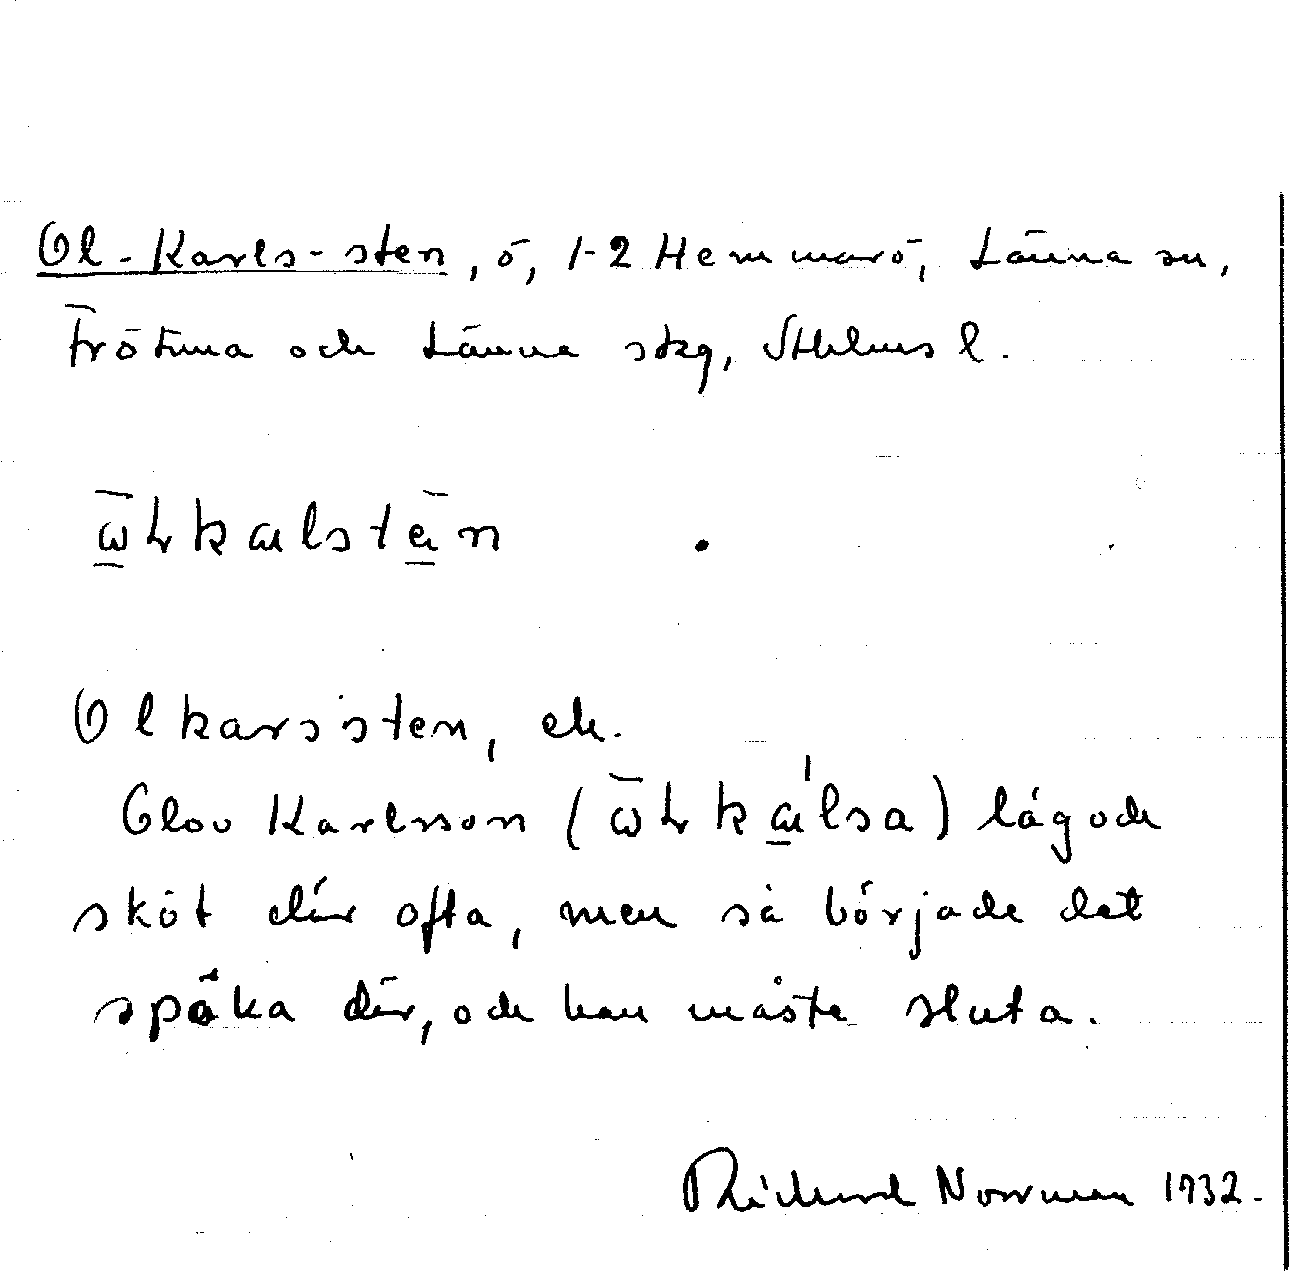 Ol-Karls-sten, ö, 1-2 Hemmarö, Länna sn,
Frötuna och Länna skg, Sthlms l.
ω̄ɫkɑlstēn
Olkarssten, ek.
Olov Karlsson (ω̄ɫkɑ́lsa) lågode
sköt där ofta, men så började det
spöka där, och han måste sluta.
Richard Norrman 1932.